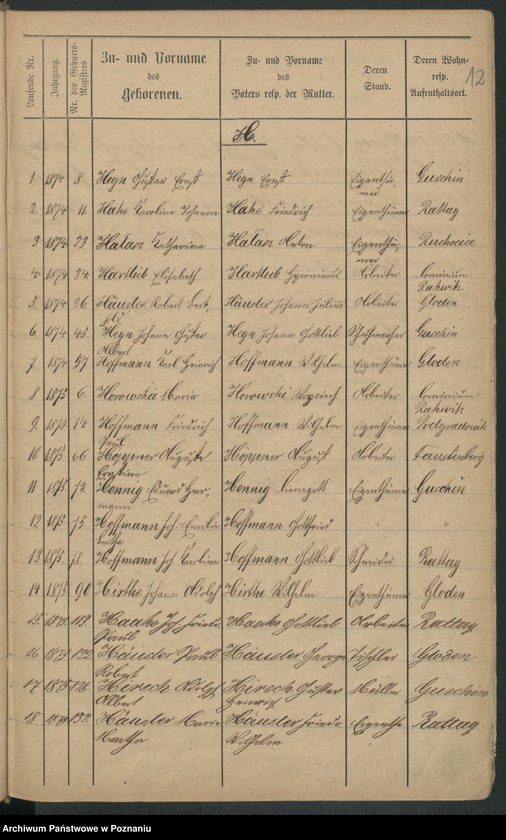 Laufende Nr.
Jahrgang.
Nr. des Geburts-
Registers.
Zu- und Vorname
des
Geborenen.
Zu- und Vorname
des
Vaters resp. der Mutter.
Deren
Stand.
Deren Wohn-
resp.
Aufenthaltsort.
12
H.
1 1874 8. Heyn Gustav Ernst Heyn Ernst Eigenthü- Guschin
mer
2. 1874 11. Hake Caroline Johanna Hake Friedrich Eigenthümer Rattay
3. 1874 23. Halasz Catharina Halasz Anton Eigenthü- Ruchocice
mer
4. 1874 34. Hartlieb Elisabeth Hartlieb Hyronimus Arbeiter Dominium
Rakwitz
5. 1874 36 Häusler Robert Häusler Johann Arbeiter Gloden
6. 1874 45. Heyn Johann Gustav Heyn Johann Gottlieb Guschin
Albert
7. 1874 57 Hoffmann Carl Heinrich Hoffmann Wilhelm Eigenthümer Gloden
8. 1875 6. Horowska Maria Horowski Woyciech Arbeiter Dominium
Rakwitz
9. 1875 Hoffmann Friedrich Hoffmann Wilhelm Eigenthümer
Paul
10. 1875 66 Höppner Auguste Höppner August Arbeiter Faustenberg
Ernstine
11 1875 72. Hennig Eduard Herr- Hennig Eigenthümer Guschin
mann
12 1875 75 Hoffmann Joh. Emilie Hoffmann Gottfried " "
Bertha
13 1875 78. Hoffmann Joh Hoffmann Gottlieb Schneider Rattay
14 1875 90 Hirthe Johann Adolf Hirthe Wilhelm Eigenthümer Gloden
15 1875 Haake Joh. Friedr. Haake Gottlieb Arbeiter Rattay
Paul
16 1875 122 Häusler Paul Häusler George Tischler Gloden
Robert
17 1875 128 Hirsch Adolf Hirsch Gustav Müller Guschin
Albert Heinrich
18 1875 132 Häusler Maria Häusler Friedr. Eigenth. Rattay
Martha Wilhelm
Archiwum Państwowe w Poznaniu